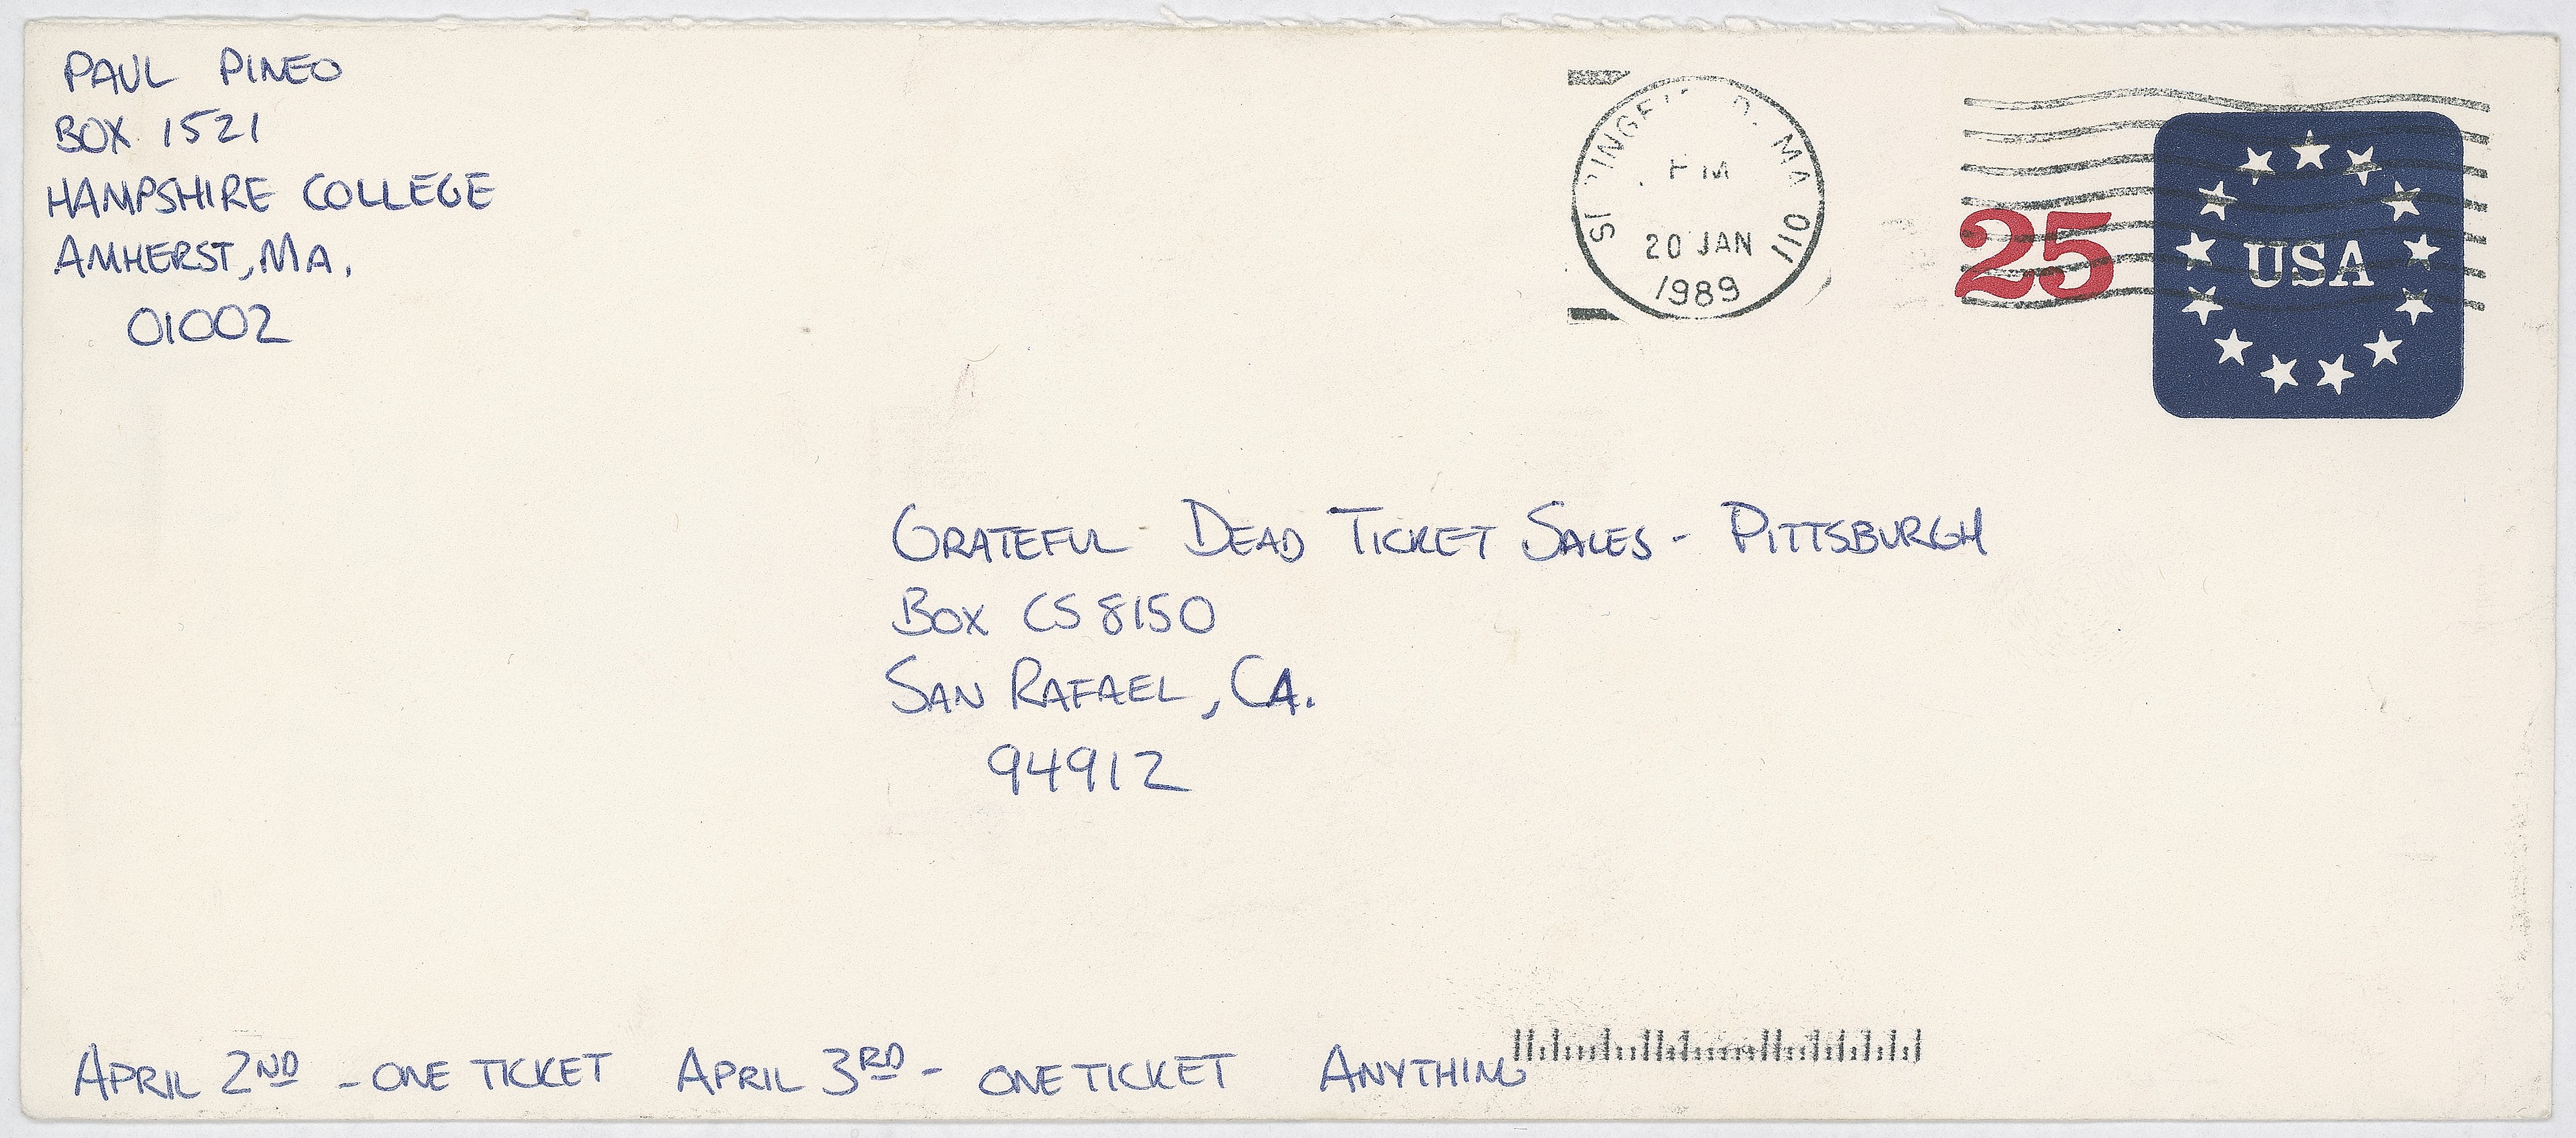 PAUL PINEO
BOX 1521
HAMPSHIRE COLLEGE
AMHERST, MA.
01002
MA 011
PM
20 JAN
1989
25
USA
GRATEFUL DEAD TICKET SALES - PITTSBURGH
BOX CS 8150
SAN RAFAEL, CA.
94912
APRIL 2ND - ONE TICKET APRIL 3RD - ONE TICKET ANYTHING